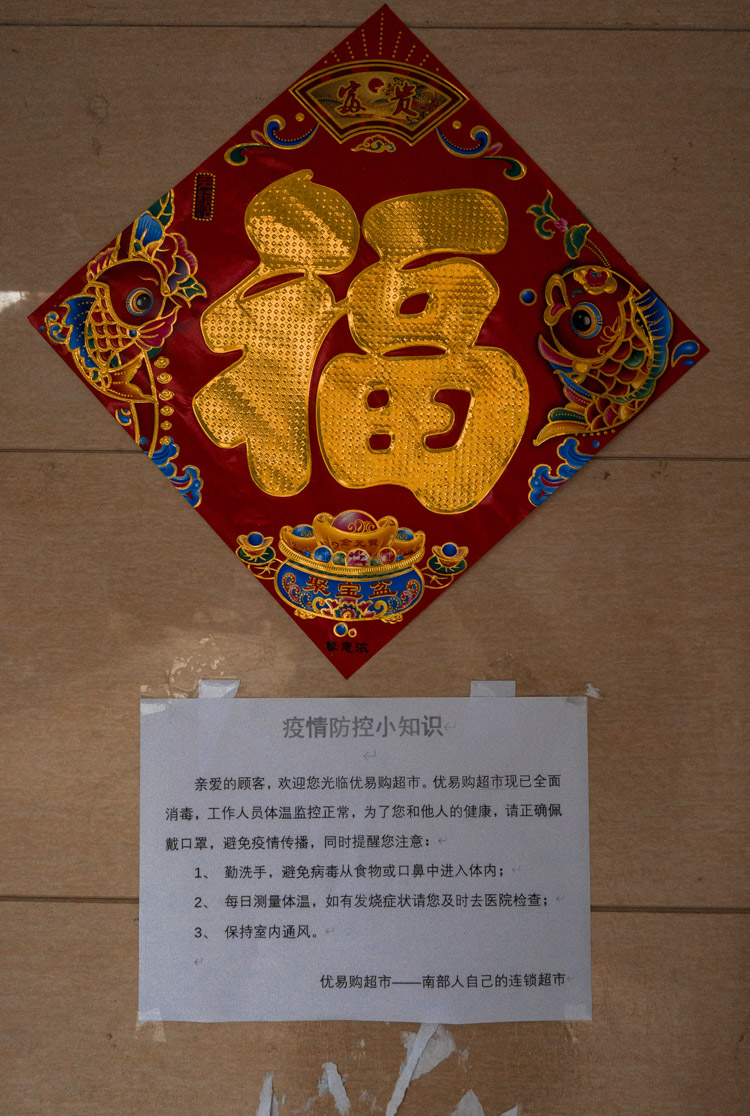 富贵
福
金元寶
聚宝盆
疫情防控小知识
亲爱的顾客，欢迎您光临优易购超市。优易购超市现已全面
消毒，工作人员体温监控正常，为了您和他人的健康，请正确佩
戴口罩，避免疫情传播，同时提醒您注意：
1、 勤洗手，避免病毒从食物或口鼻中进入体内；
2、 每日测量体温，如有发烧症状请您及时去医院检查；
3、 保持室内通风。
优易购超市——南部人自己的连锁超市